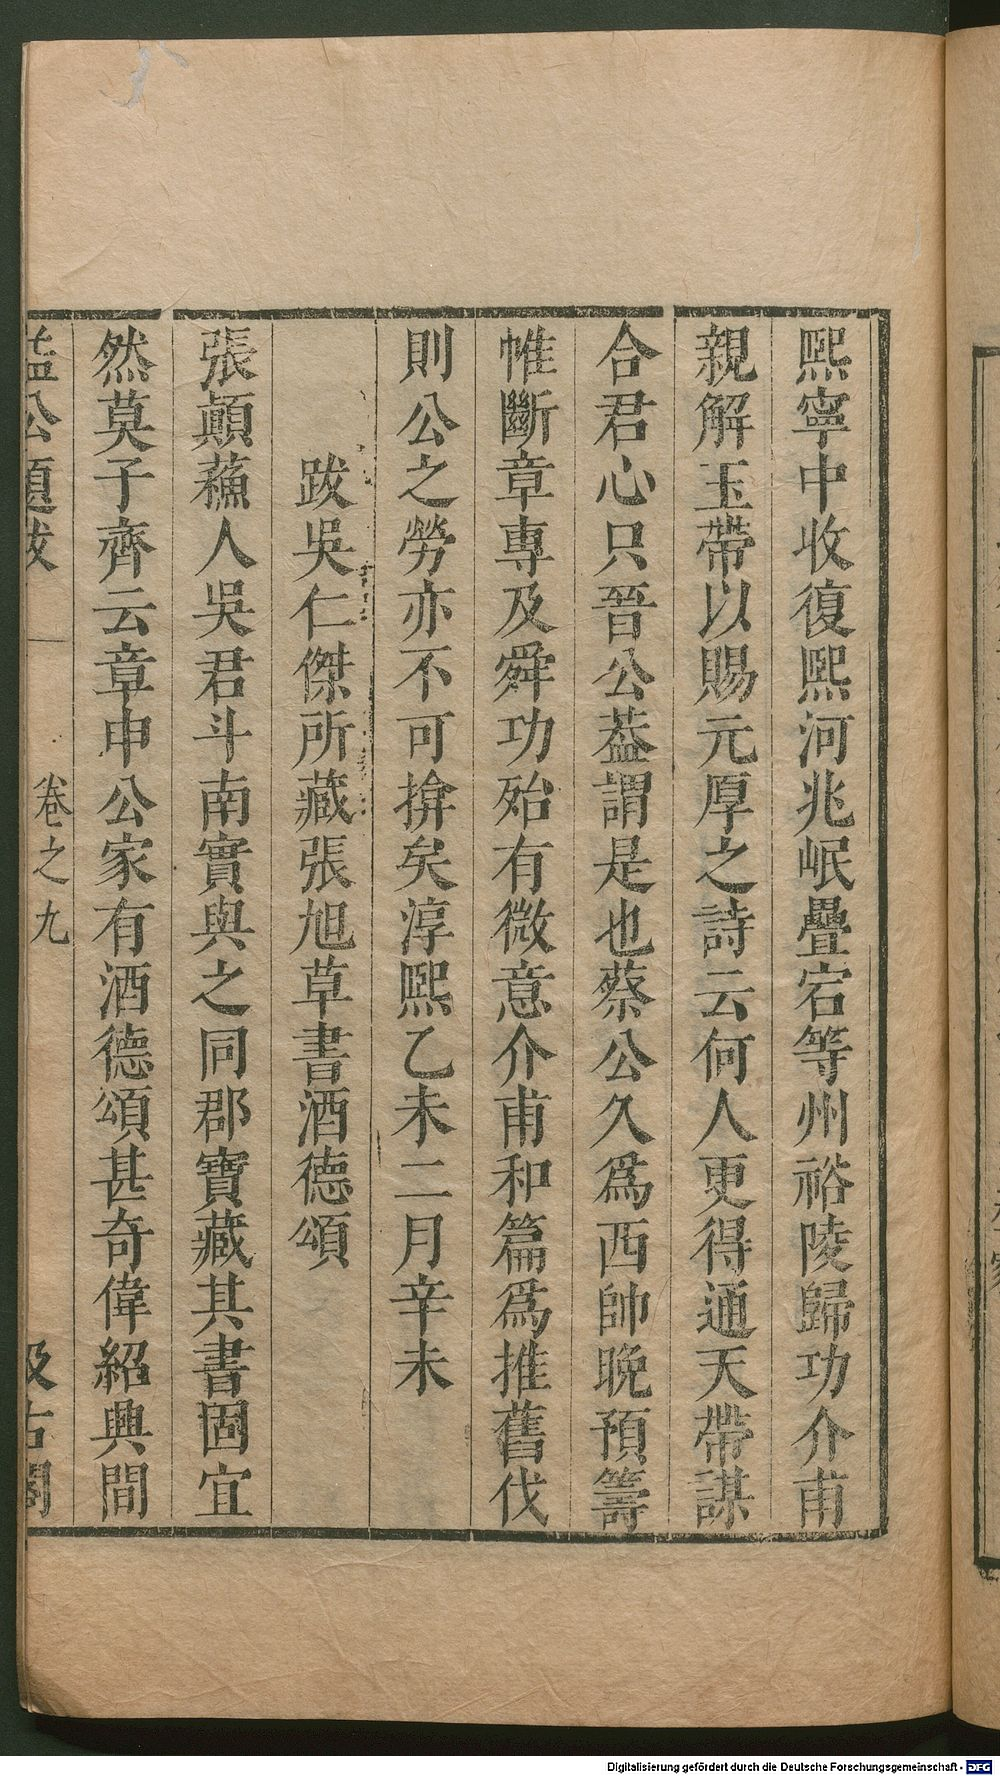 熈寧中收復熈河兆岷疊宕等州裕陵歸功介甫
親解玉帶以賜元厚之詩云何人更得通天帶謀
合君心只晉公葢謂是也蔡公久爲西帥晚預籌
帷斷章專及舜功殆有微意介甫和篇爲推舊伐
則公之勞亦不可揜矣淳熈乙未二月辛未
跋吳仁傑所藏張旭草書酒德頌
張顚蘓人吳君斗南實與之同郡寶藏其書固宜
然莫子齊云章申公家有酒德頌甚奇偉紹興間
益公題跋
卷之九
汲古閣
Digitalisierung gefördert durch die Deutsche Forschungsgemeinschaft - DFG